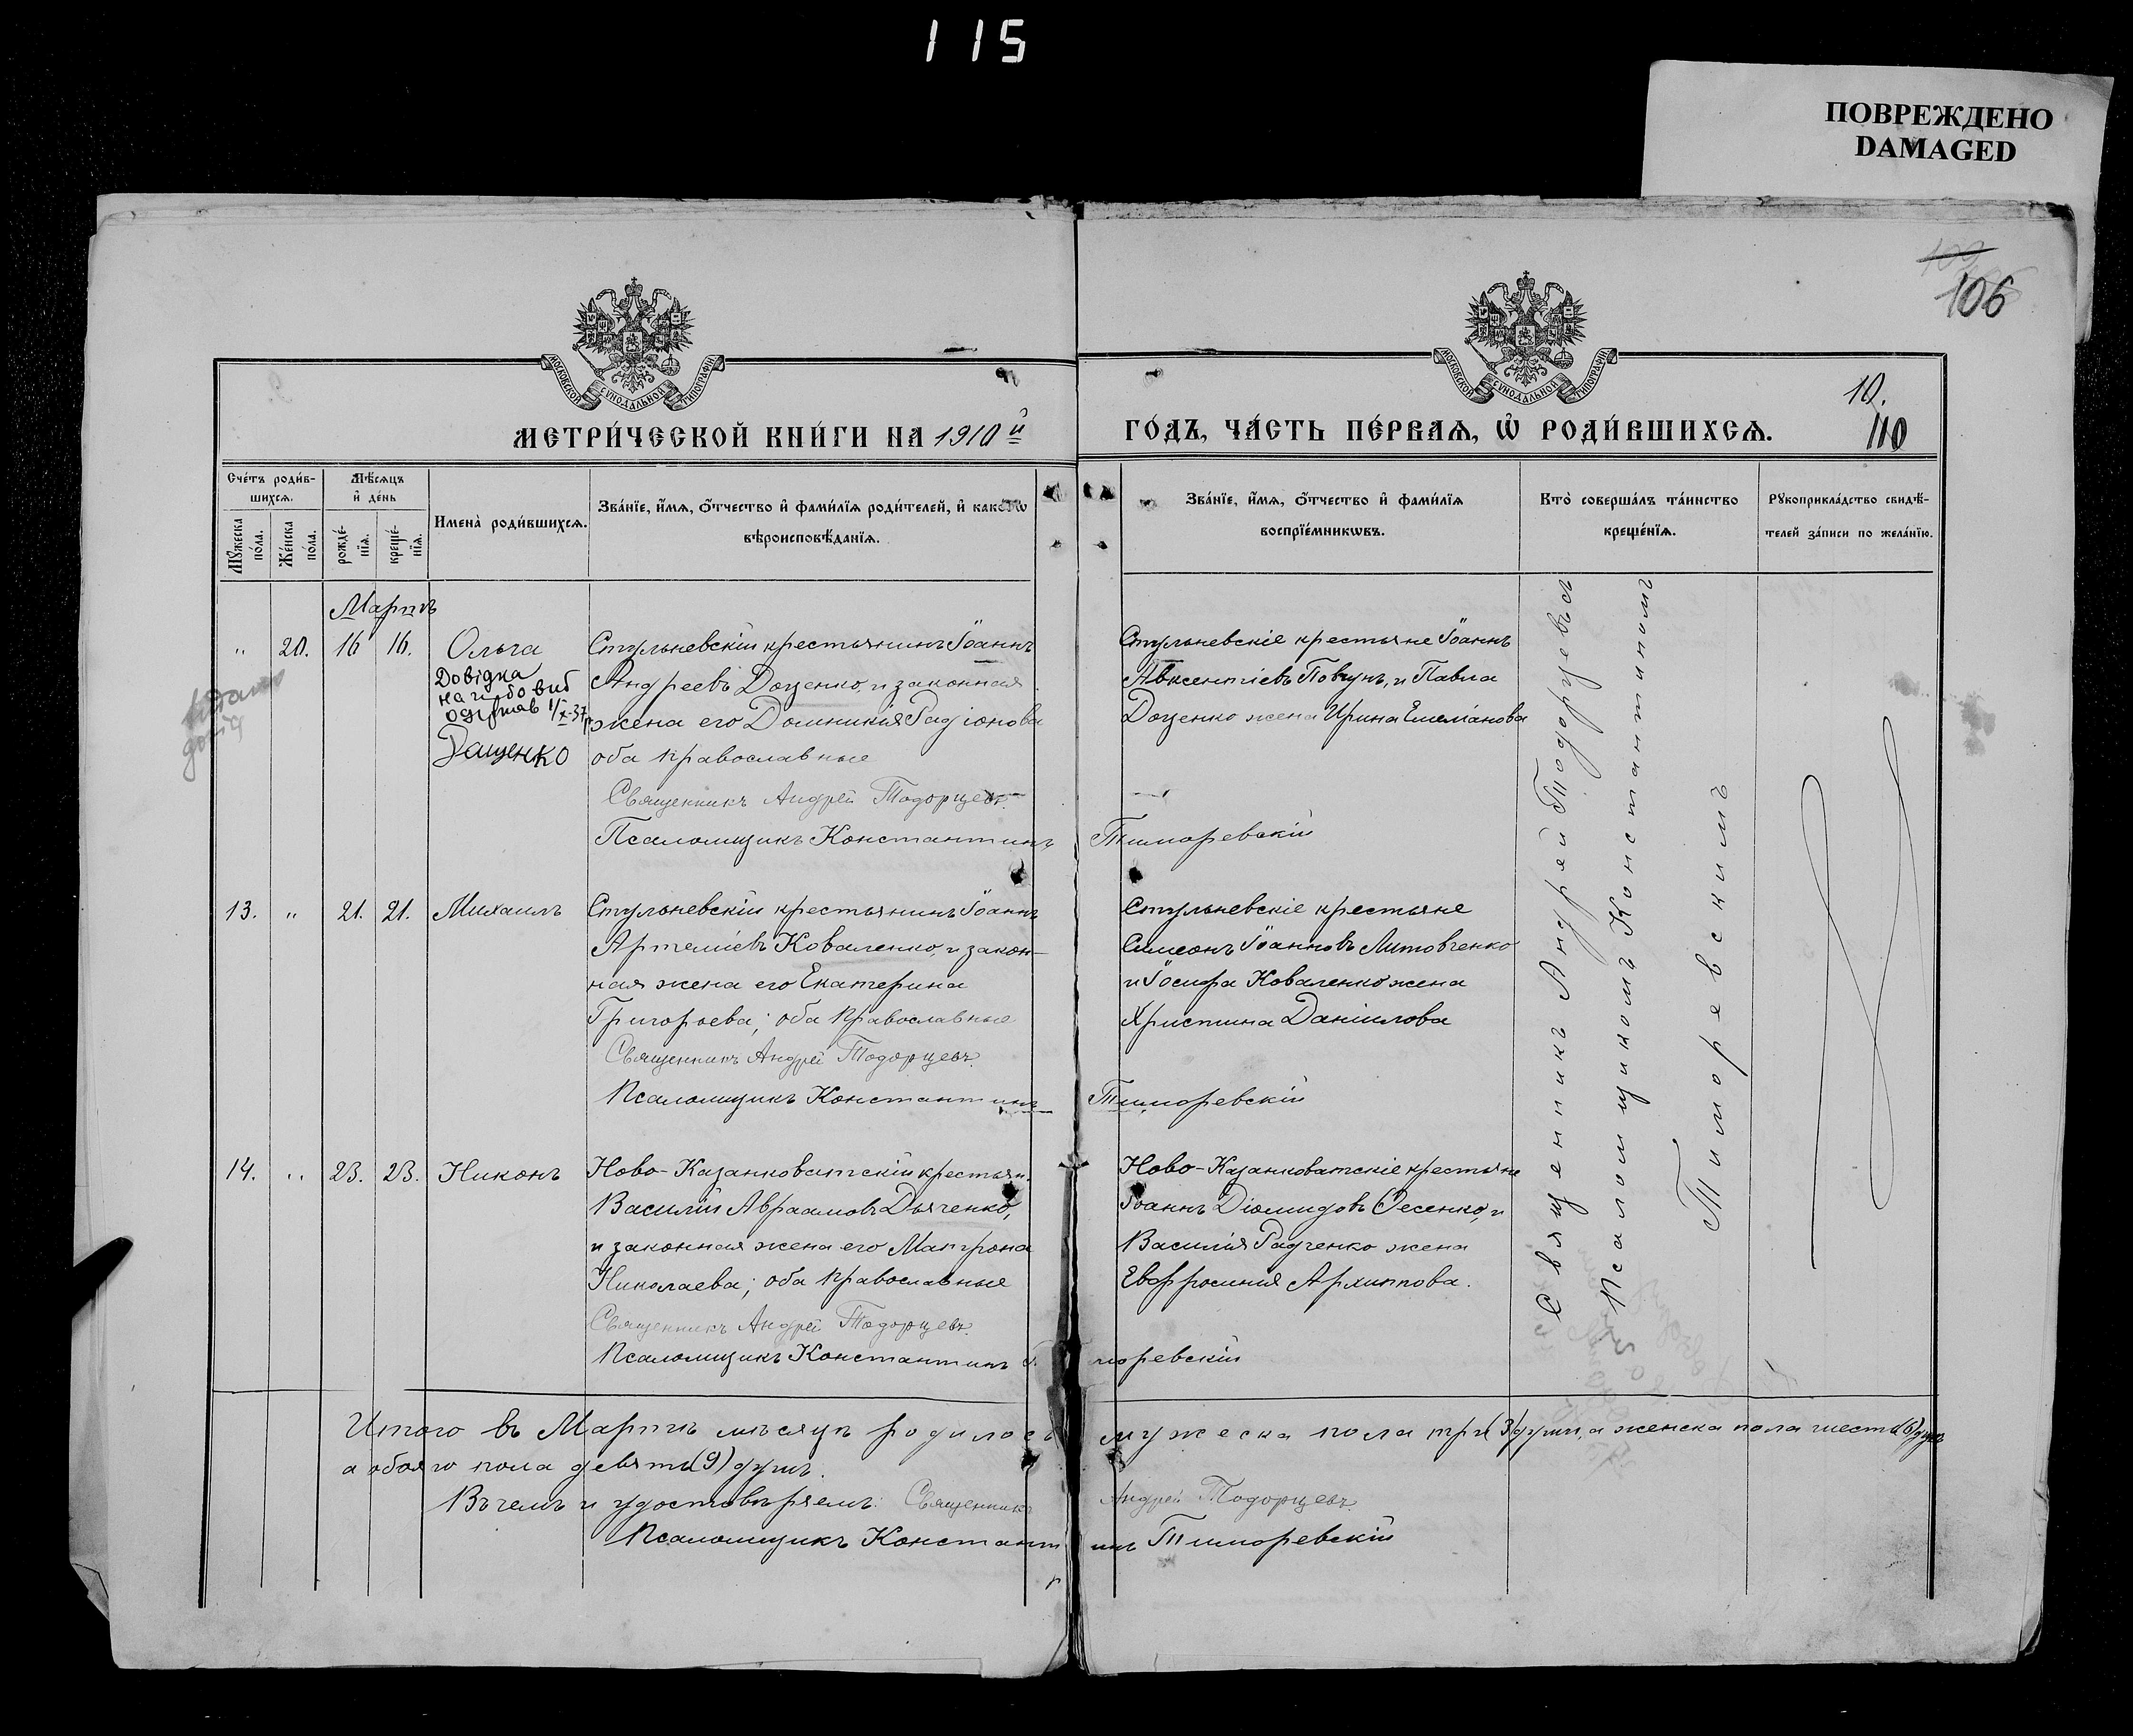 115
ПОВРЕЖДЕНО
DAMAGED
106
МОСКОВСКОЙ СѴНОДАЛЬНОЙ ТИПОГРАФІИ
МОСКОВСКОЙ СѴНОДАЛЬНОЙ ТИПОГРАФІИ
10.
110
МЕТРИ́ЧЕСКОЙ КНИ́ГИ НА 1910й
ГО́ДЪ, ЧА́СТЬ ПЕ́РВАѦ, Ѡ҆ РОДИ́ВШИХСѦ.
Сче́тъ роди́в-
шихсѧ.
Мꙋ́жеска по́ла.
Же́нска по́ла.
Мѣ́сѧцъ
и҆ де́нь
рожде́-
нїѧ.
креще́-
нїѧ.
Имена̀ роди́вшихсѧ.
Зва́нїе, и҆́мѧ, ѻ҆́тчество и҆ фами́лїѧ роди́телей, и҆ како́гѡ
вѣроисповѣ́данїѧ.
Зва́нїе, и҆́мѧ, ѻ҆́тчество и҆ фами́лїѧ
воспрїе́мникѡвъ.
Кто̀ соверша́лъ та́инство
креще́нїѧ.
Рꙋкоприкла́дство свидѣ́-
телей за́писи по жела́нїю.
Мартъ
" 20. 16 16. Ольга
Довідка
одержав 1/X-37 р
Дащенко
Стульневскій крестьянинъ Іоаннъ
Андреевъ Доценко, и законная
жена его Домникія Радіонова
оба православные
Священникъ Андрей Тодорцевъ.
Псаломщикъ Константинъ Тиморевскій
Стульневскіе крестьяне Іоаннъ
Авксентіевъ Повзунъ, и Павла
Доценко жена Ирина Емеліанова
13. " 21. 21. Михаилъ
Стульневскій крестьянинъ Іоаннъ
Артеміевъ Коваленко, и закон-
ная жена его Екатерина
Григорьева; оба православные
Священникъ Андрей Тодорцевъ.
Псаломщикъ Константинъ Тиморевскій
Стульневскіе крестьяне
Симеонъ Іоанновъ Литовченко
и Іосифа Коваленко жена
Христина Даніилова
14. " 23. 23. Никонъ
Ново-Казанковатскій крестьян.
Василій Авраамовъ Дьяченко,
и законная жена его Матрона
Николаева; оба православные
Священникъ Андрей Тодорцевъ.
Псаломщикъ Константинъ Тиморевскій
Ново-Казанковатскіе крестьяне
Іоаннъ Діомидовъ Фесенко, и
Василія Радченко жена
Евфросинія Архипова.
Священникъ Андрей Тодорцевъ съ
Псаломщикомъ Константиномъ
Тиморевскимъ
Итого въ Мартѣ мѣсяцѣ родилось мужеска пола три (3) души, а женска пола шесть (6) душъ
а обоего пола девять (9) душъ.
Въ чемъ и удостовѣряемъ: Священникъ Андрей Тодорцевъ.
Псаломщикъ Константинъ Тиморевскій